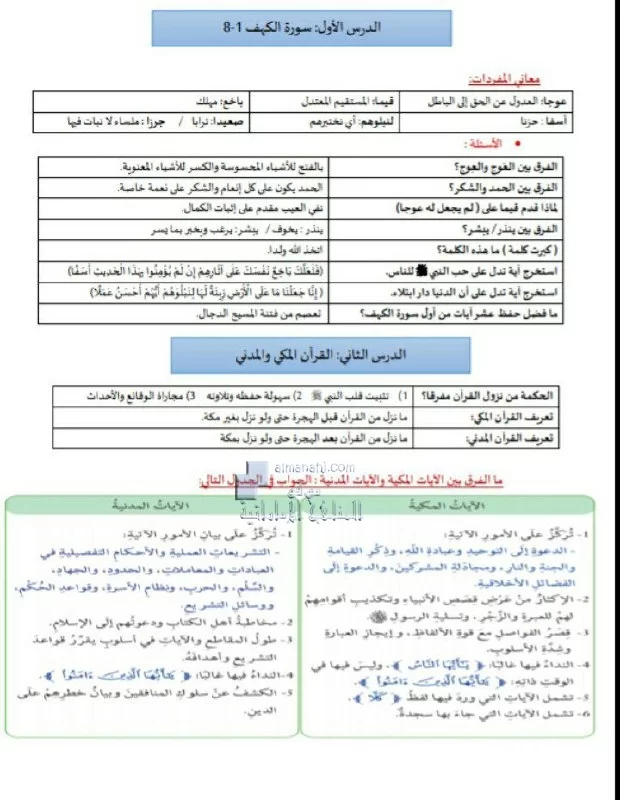 الدرس الأول: سورة الكهف 1-8
معاني المفردات:
عوجا: العدول عن الحق إلى الباطل قيما: المستقيم المعتدل باخع: مهلك
أسفا: حزنا لنبلوهم: أي نختبرهم صعيدا: ترابا / جرزا: ملساء لا نبات فيها
• الأسئلة:
الفرق بين العَوج والعِوج؟ بالفتح للأشياء المحسوسة والكسر للأشياء المعنوية.
الفرق بين الحمد والشكر؟ الحمد يكون على كل إنعام والشكر على نعمة خاصة.
لماذا قدم قيما على ( لم يجعل له عوجا) نفي العيب مقدم على إثبات الكمال.
الفرق بين ينذر/ يبشر؟ ينذر: يخوف / يبشر: يرغب ويخبر بما يسر
( كبرت كلمة ) ما هذه الكلمة؟ اتخذ الله ولدا.
استخرج آية تدل على حب النبي ﷺ للناس. (فَلَعَلَّكَ بَاخِعٌ نَفْسَكَ عَلَى آثَارِهِمْ إِنْ لَمْ يُؤْمِنُوا بِهَذَا الْحَدِيثِ أَسَفًا)
استخرج آية تدل على أن الدنيا دار ابتلاء. ( إِنَّا جَعَلْنَا مَا عَلَى الْأَرْضِ زِينَةً لَهَا لِنَبْلُوَهُمْ أَيُّهُمْ أَحْسَنُ عَمَلًا)
ما فضل حفظ عشر آيات من أول سورة الكهف؟ تعصم من فتنة المسيح الدجال.
الدرس الثاني: القرآن المكي والمدني
الحكمة من نزول القرآن مفرقا؟ 1) تثبيت قلب النبي ﷺ 2) سهولة حفظه وتلاوته 3) مجاراة الوقائع والأحداث
تعريف القرآن المكي: ما نزل من القرآن قبل الهجرة حتى ولو نزل بغير مكة.
تعريف القرآن المدني: ما نزل من القرآن بعد الهجرة حتى ولو نزل بمكة
almanahj.com
موقع
المناهج الإماراتية
ما الفرق بين الآيات المكية والآيات المدنية : الجواب في الجدول التالي:
الآياتُ المكيةُ
1- تُرَكّزُ على الأمورِ الآتيةِ:
- الدعوةِ إلى التوحيدِ وعبادةِ اللهِ، وذِكْرِ القيامةِ
والجنةِ والنارِ، ومجادلةِ المشركينَ، والدعوةِ إلى
الفضائلِ الأخلاقيةِ.
2- الإكثارُ منْ عَرْضِ قِصَصِ الأنبياءِ وتكذيبِ أقوامِهمْ
لهمْ للعبرةِ والزَّجْرِ، وتسليةِ الرسولِ ﷺ
3- قِصَرُ الفواصلِ معَ قوةِ الألفاظِ، و إيجازِ العبارةِ
وشِدَّةِ الأسلوبِ.
4- النداءُ فيها غالبًا: ﴿ يَٰٓأَيُّهَا النَّاسُ ﴾. وليسَ فيها في
الوقتِ ذاتِهِ: ﴿ يَٰٓأَيُّهَا ٱلَّذِينَ ءَامَنُواْ ﴾.
5- تشملُ الآياتِ التي وردَ فيها لفظُ ﴿ كَلَّا ﴾.
6- تشملُ الآياتِ التي جاءَ بها سجدةٌ.
الآياتُ المدنيةُ
1- تُرَكّزُ على بيانِ الأمورِ الآتيةِ:
- التشريعاتِ العمليةِ والأحكامِ التفصيليةِ في
العباداتِ والمعاملاتِ، والحدودِ، والجهادِ،
والسِّلْمِ، والحربِ، ونظامِ الأسرةِ، وقواعدِ الحُكْمِ،
ووسائلِ التشريعِ.
2- مخاطبةُ أهلِ الكتابِ ودعوتُهم إلى الإسلامِ.
3- طولُ المقاطعِ والآياتِ في أسلوبٍ يقرّرُ قواعدَ
التشريعِ وأهدافَهُ.
4- النداءُ فيها غالبًا: ﴿ يَٰٓأَيُّهَا ٱلَّذِينَ ءَامَنُواْ ﴾.
5- الكشفُ عنْ سلوكِ المنافقينَ وبيانُ خطرِهِمْ على
الدينِ.